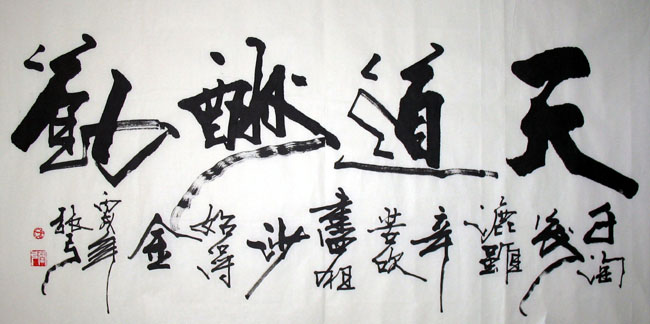 天道酬勤
千淘
萬
漉雖
辛
苦吹
盡狂
沙
始得
金